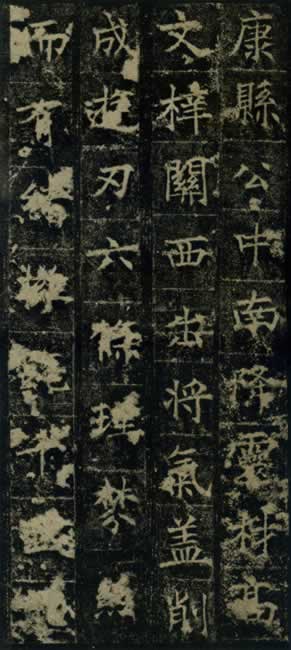 康縣公中南降靈材高
文梓關西出將氣蓋削
成遊刃六條理棼絲
而有緒